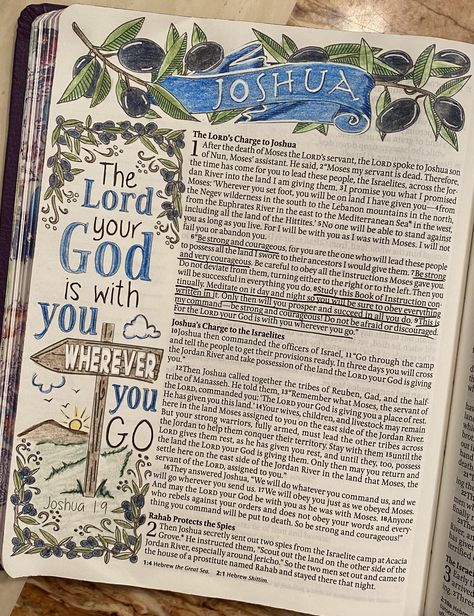 JOSHUA
The
Lord
your
God
is with
you
WHEREVER
you
GO
Joshua 1:9
The LORD's Charge to Joshua
1 After the death of Moses the LORD's servant, the LORD spoke to Joshua son
of Nun, Moses' assistant. He said, 2“Moses my servant is dead. Therefore,
the time has come for you to lead these people, the Israelites, across the Jor-
dan River into the land I am giving them. 3I promise you what I promised
Moses: ‘Wherever you set foot, you will be on land I have given you—4from
the Negev wilderness in the south to the Lebanon mountains in the north,
from the Euphrates River in the east to the Mediterranean Sea* in the west,
including all the land of the Hittites.’ 5No one will be able to stand against
you as long as you live. For I will be with you as I was with Moses. I will not
fail you or abandon you.
6“Be strong and courageous, for you are the one who will lead these people
to possess all the land I swore to their ancestors I would give them. 7Be strong
and very courageous. Be careful to obey all the instructions Moses gave you.
Do not deviate from them, turning either to the right or to the left. Then you
will be successful in everything you do. 8Study this Book of Instruction con-
tinually. Meditate on it day and night so you will be sure to obey everything
written in it. Only then will you prosper and succeed in all you do. 9This is
my command—be strong and courageous! Do not be afraid or discouraged.
For the LORD your God is with you wherever you go.”
Joshua's Charge to the Israelites
10Joshua then commanded the officers of Israel, 11“Go through the camp
and tell the people to get their provisions ready. In three days you will cross
the Jordan River and take possession of the land the LORD your God is giving
you.”
12Then Joshua called together the tribes of Reuben, Gad, and the half-
tribe of Manasseh. He told them, 13“Remember what Moses, the servant of
the LORD, commanded you: ‘The LORD your God is giving you a place of rest.
He has given you this land.’ 14Your wives, children, and livestock may remain
here in the land Moses assigned to you on the east side of the Jordan River.
But your strong warriors, fully armed, must lead the other tribes across
the Jordan to help them conquer their territory. Stay with them 15until the
LORD gives them rest, as he has given you rest, and until they, too, possess
the land the LORD your God is giving them. Only then may you return and
settle here on the east side of the Jordan River in the land that Moses, the
servant of the LORD, assigned to you.”
16They answered Joshua, “We will do whatever you command us, and we
will go wherever you send us. 17We will obey you just as we obeyed Moses.
And may the LORD your God be with you as he was with Moses. 18Anyone
who rebels against your orders and does not obey your words and every-
thing you command will be put to death. So be strong and courageous!”
Rahab Protects the Spies
2 Then Joshua secretly sent out two spies from the Israelite camp at Acacia
Grove.* He instructed them, “Scout out the land on the other side of the
Jordan River, especially around Jericho.” So the two men set out and came to
the house of a prostitute named Rahab and stayed there that night.
1:4 Hebrew the Great Sea. 2:1 Hebrew Shittim.